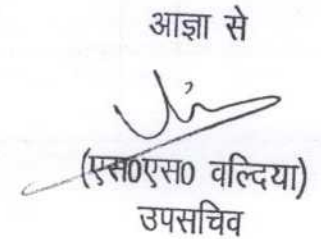 आज्ञा से
(एस0एस0 वल्दिया)
उपसचिव